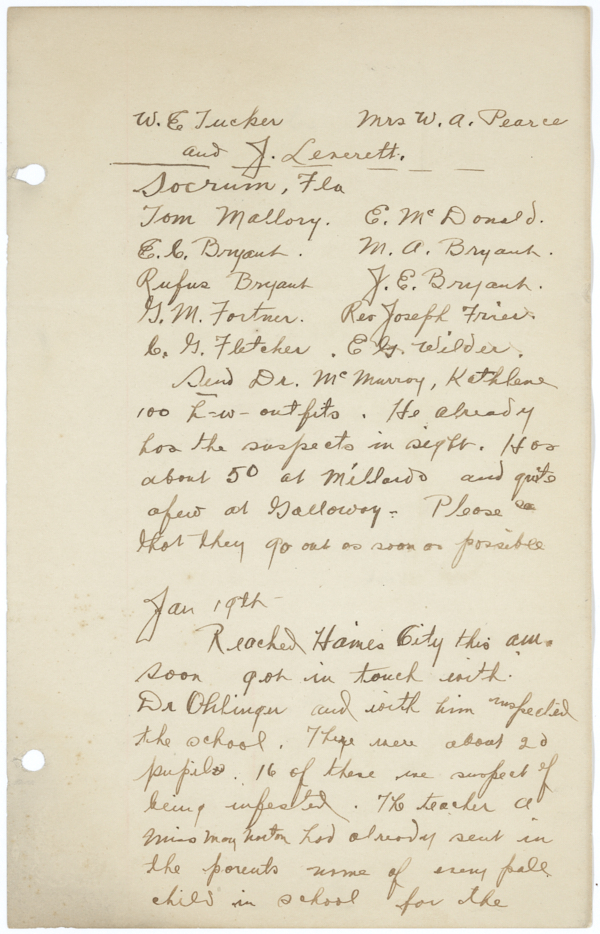 W. E Tucker Mrs W. A. Pearce
and J. Leverett.
Socrum, Fla
Tom Mallory. E. Mc Donald.
E. C. Bryant. M. A. Bryant.
Rufus Bryant J. E. Bryant.
G. M. Fortner. Rev Joseph Frier.
C. G. Fletcher. E G. Wilder.
Send Dr. McMurroy, Kathlene
100 h-w-outfits. He already
has the suspects in sight. Has
about 50 at Millards and quite
a few at Galloway - Please see
that they go out as soon as possible
Jan 19th
Reached Haines City this am.
soon got in touch with
Dr Ohlinger and with him inspected
the school. There were about 20
pupils. 16 of these we suspect of
being infested. The teacher a
Miss May Norton had already sent in
the parents name of every pale
child in school for the